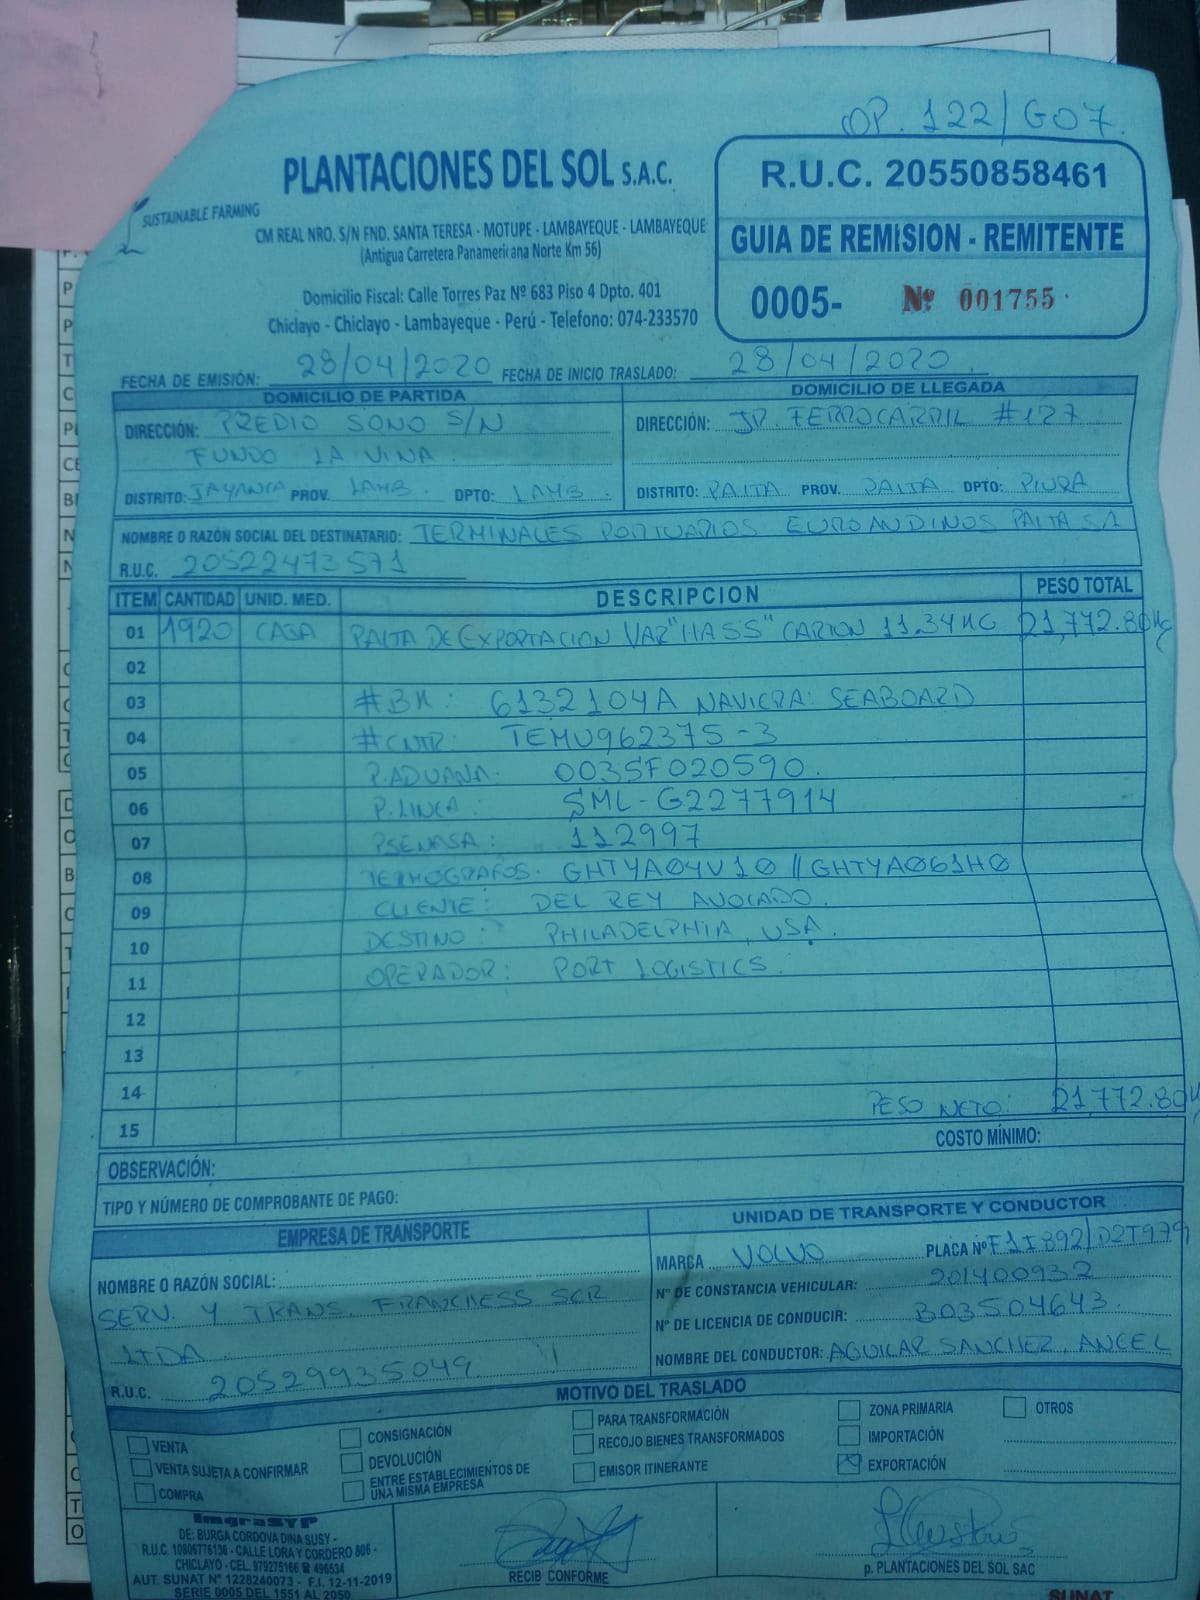 OP. 122/G07.
PLANTACIONES DEL SOL S.A.C.
SUSTAINABLE FARMING
CM REAL NRO. S/N FND. SANTA TERESA - MOTUPE - LAMBAYEQUE - LAMBAYEQUE
(Antigua Carretera Panamericana Norte Km 56)
Domicilio Fiscal: Calle Torres Paz Nº 683 Piso 4 Dpto. 401
Chiclayo - Chiclayo - Lambayeque - Perú - Telefono: 074-233570
R.U.C. 20550858461
GUIA DE REMISION - REMITENTE
0005- Nº 001755
FECHA DE EMISIÓN: 28/04/2020 FECHA DE INICIO TRASLADO: 28/04/2020
DOMICILIO DE PARTIDA DOMICILIO DE LLEGADA
DIRECCIÓN: PREDIO SONO S/N DIRECCIÓN: JR. FERROCARRIL #127
FUNDO LA VINA
DISTRITO: JAYANCA PROV. LAMB. DPTO: LAMB. DISTRITO: PAITA PROV. PAITA DPTO: PIURA
NOMBRE O RAZÓN SOCIAL DEL DESTINATARIO: TERMINALES PORTUARIOS EUROANDINOS PAITA SA
R.U.C. 20522473571
ITEM CANTIDAD UNID. MED. DESCRIPCION PESO TOTAL
01 1920 CAJA PALTA DE EXPORTACION VAR "HASS" CARTON 11.34 KG 21,772.80 KG
02
03 #BK: 6132104A NAVIERA: SEABOARD
04 #CNTR: TEMU962375-3
05 P.ADUANA: 0035F020590.
06 P.LINEA: SML-G2277914
07 P.SENASA: 112997
08 TERMOGRAFOS: GHTYA04V10 // GHTYA061H0
09 CLIENTE: DEL REY AVOCADO.
10 DESTINO: PHILADELPHIA, USA.
11 OPERADOR: PORT LOGISTICS.
12
13
14 PESO NETO: 21,772.80
15
COSTO MÍNIMO:
OBSERVACIÓN:
TIPO Y NÚMERO DE COMPROBANTE DE PAGO:
EMPRESA DE TRANSPORTE UNIDAD DE TRANSPORTE Y CONDUCTOR
MARCA VOLVO PLACA Nº F1I892/D2T979
NOMBRE O RAZÓN SOCIAL: Nº DE CONSTANCIA VEHICULAR: 201400932
SERV. Y TRANS. FRANCHESS SCR Nº DE LICENCIA DE CONDUCIR: B03504643.
LTDA NOMBRE DEL CONDUCTOR: AGUILAR SANCHEZ, ANGEL
R.U.C. 20529935049
MOTIVO DEL TRASLADO
VENTA CONSIGNACIÓN PARA TRANSFORMACIÓN ZONA PRIMARIA OTROS
VENTA SUJETA A CONFIRMAR DEVOLUCIÓN RECOJO BIENES TRANSFORMADOS IMPORTACIÓN
COMPRA ENTRE ESTABLECIMIENTOS DE UNA MISMA EMPRESA EMISOR ITINERANTE EXPORTACIÓN
ImgraSYP
DE: BURGA CORDOVA DINA SUSY -
R.U.C. 10806776136 - CALLE LORA Y CORDERO 806 -
CHICLAYO - CEL. 979275166 ☎ 496534
AUT. SUNAT Nº 1228240073 - F.I. 12-11-2019
SERIE 0005 DEL 1551 AL 2050
RECIBÍ CONFORME
p. PLANTACIONES DEL SOL SAC
SUNAT